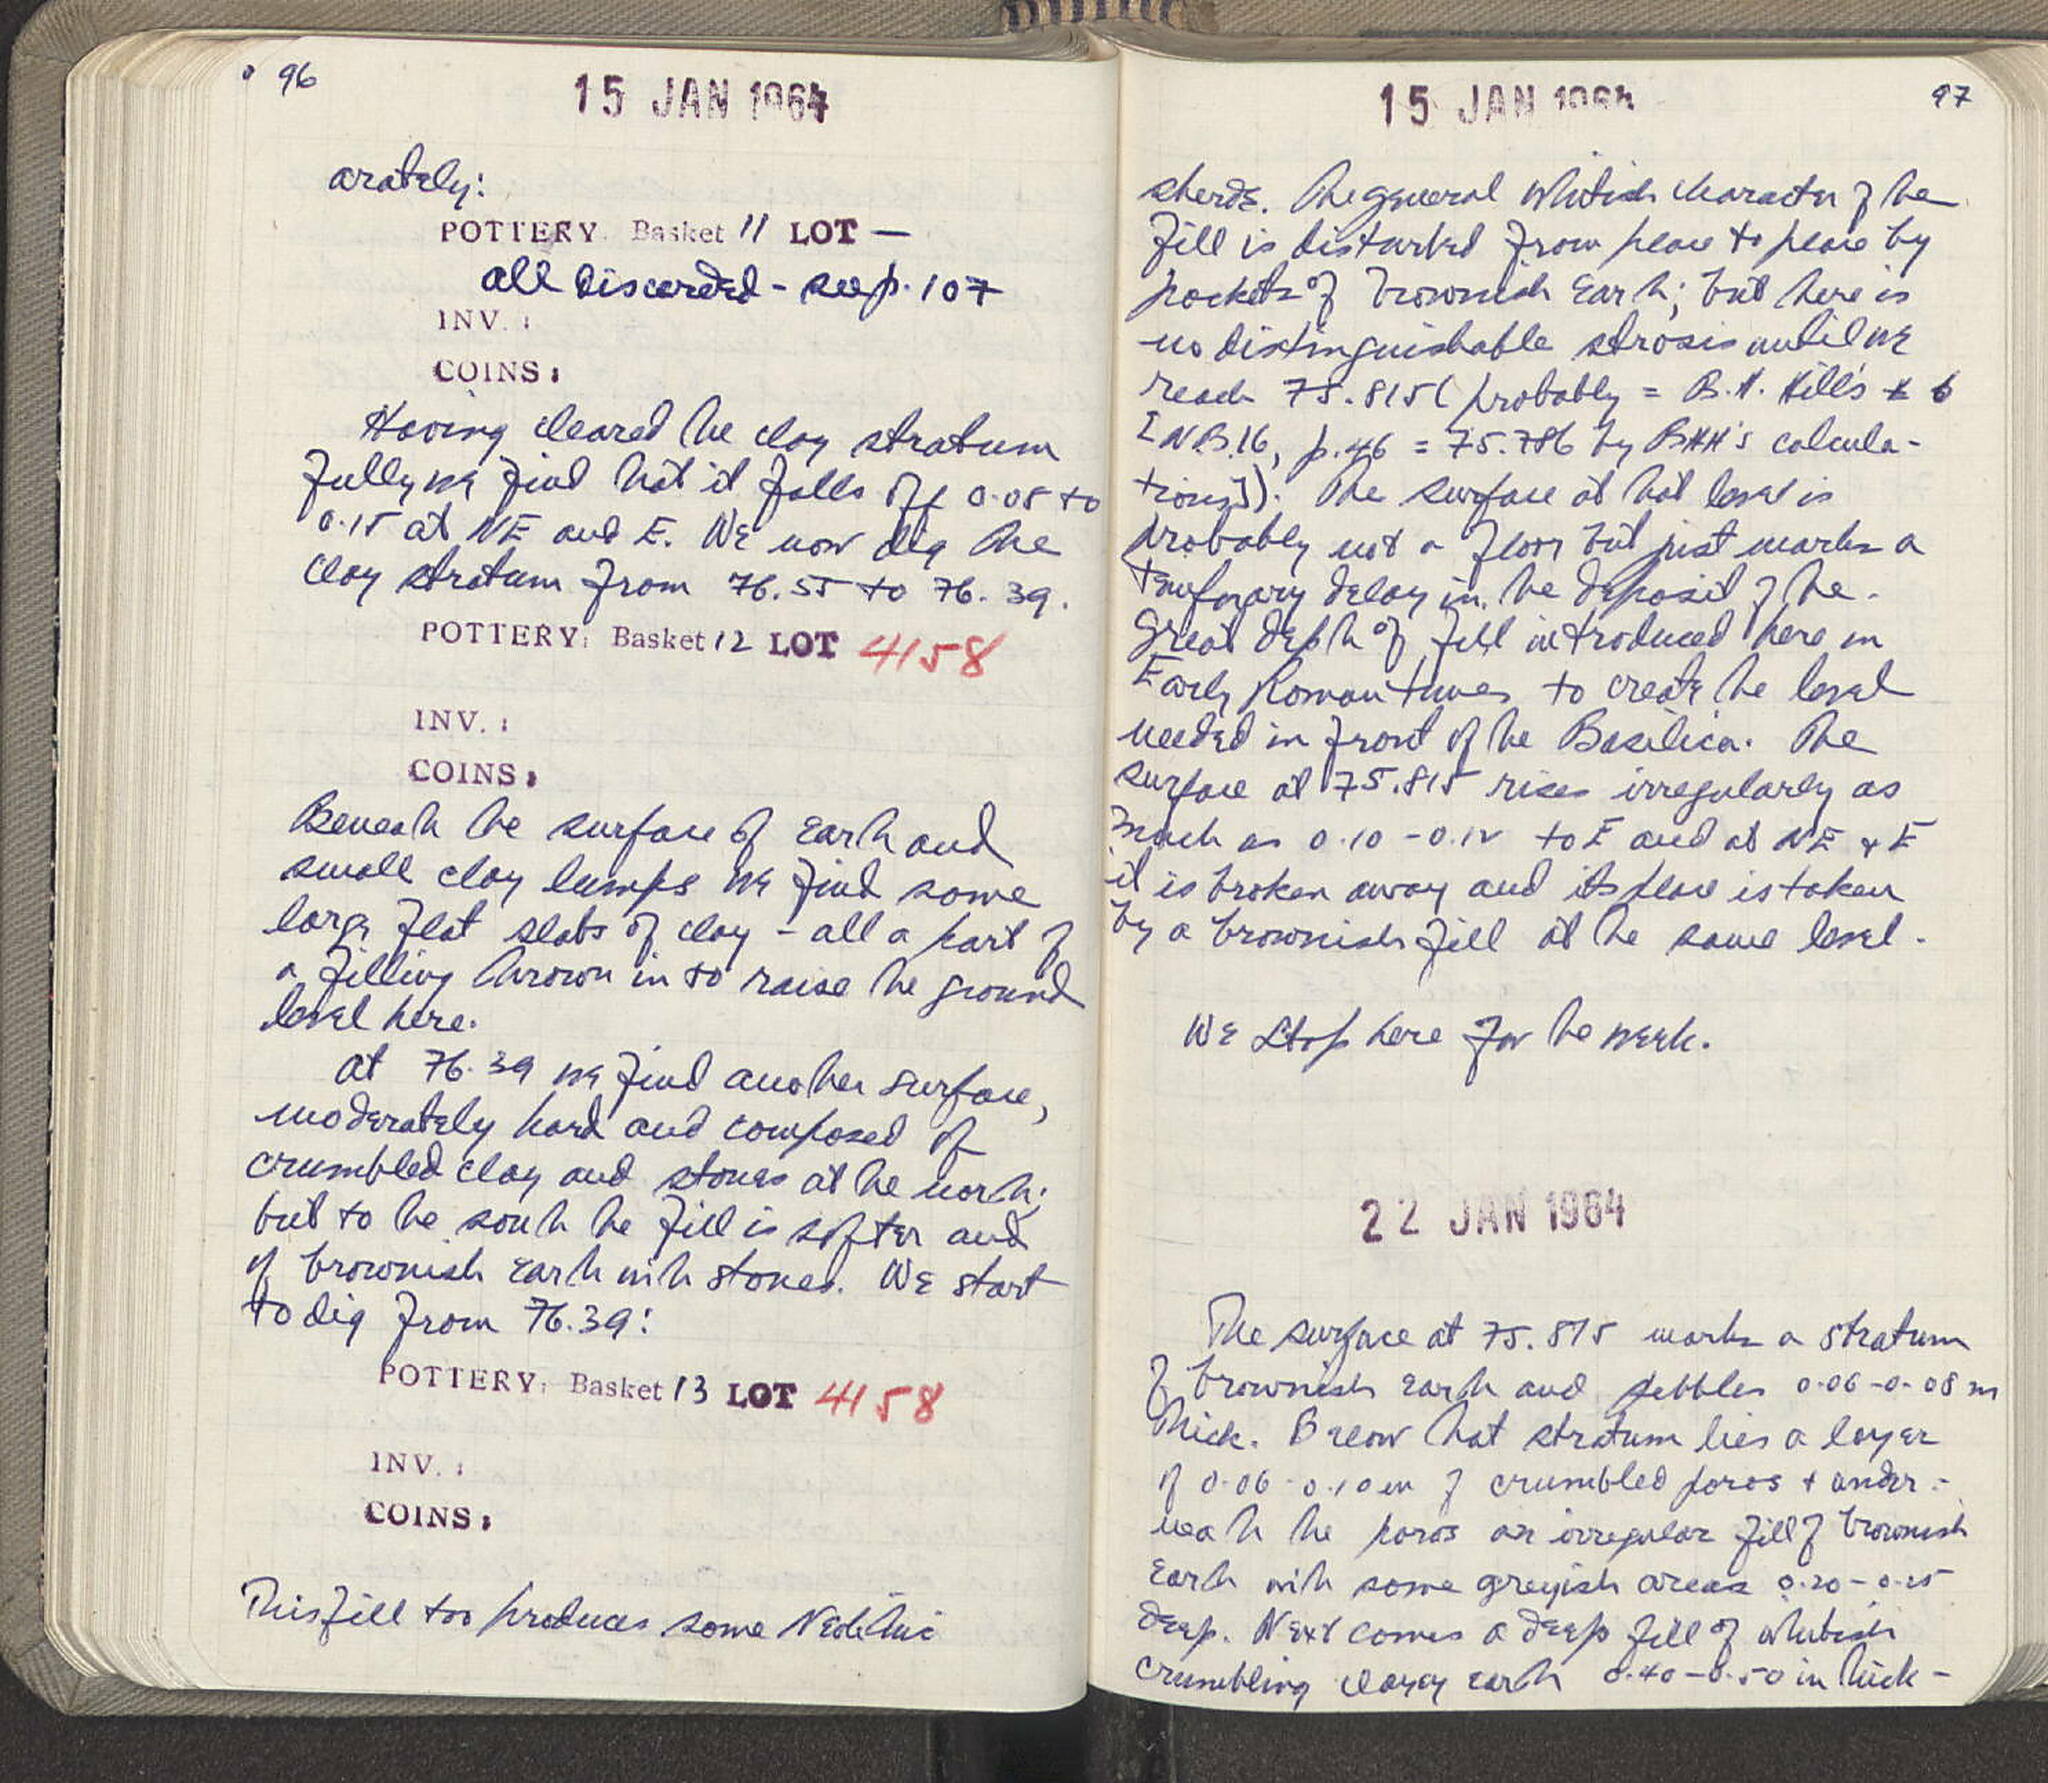 96
15 JAN 1964
arately:
POTTERY: Basket 11 LOT —
all discarded - see p. 107
INV. :
COINS:
Having cleared the clay stratum
fully we find that it falls off 0.05 to
0.15 at NE and E. We now dig the
clay stratum from 76.55 to 76.39.
POTTERY: Basket 12 LOT 4158
INV. :
COINS:
Beneath the surface of earth and
small clay lumps we find some
large flat slabs of clay - all a part of
a filling thrown in to raise the ground
level here.
At 76.39 we find another surface,
moderately hard and composed of
crumbled clay and stones at the north;
but to the south the fill is softer and
of brownish earth with stones. We start
to dig from 76.39:
POTTERY: Basket 13 LOT 4158
INV. :
COINS:
This fill too produces some Neolithic
15 JAN 1964
97
sherds. The general whitish character of the
fill is disturbed from place to place by
pockets of brownish earth; but there is
no distinguishable strosis until we
reach 75.815 (probably = B.H. Hill's 6
[N.B. 16, p. 46 = 75.786 by BHH's calcula-
tions]). The surface at that level is
probably not a floor but just marks a
temporary delay in the deposit of the
great depth of fill introduced here in
Early Roman times to create the level
needed in front of the Basilica. The
surface at 75.815 rises irregularly as
much as 0.10 - 0.12 to E and at NE & E
it is broken away and its place is taken
by a brownish fill at the same level.
We stop here for the week.
22 JAN 1964
The surface at 75.815 marks a stratum
of brownish earth and pebbles 0.06 - 0.08 m
thick. Below that stratum lies a layer
of 0.06 - 0.10 m of crumbled poros & under-
neath the poros an irregular fill of brownish
earth with some greyish areas 0.20 - 0.25
deep. Next comes a deep fill of whitish
crumbling clayey earth 0.40 - 0.50 in thick-